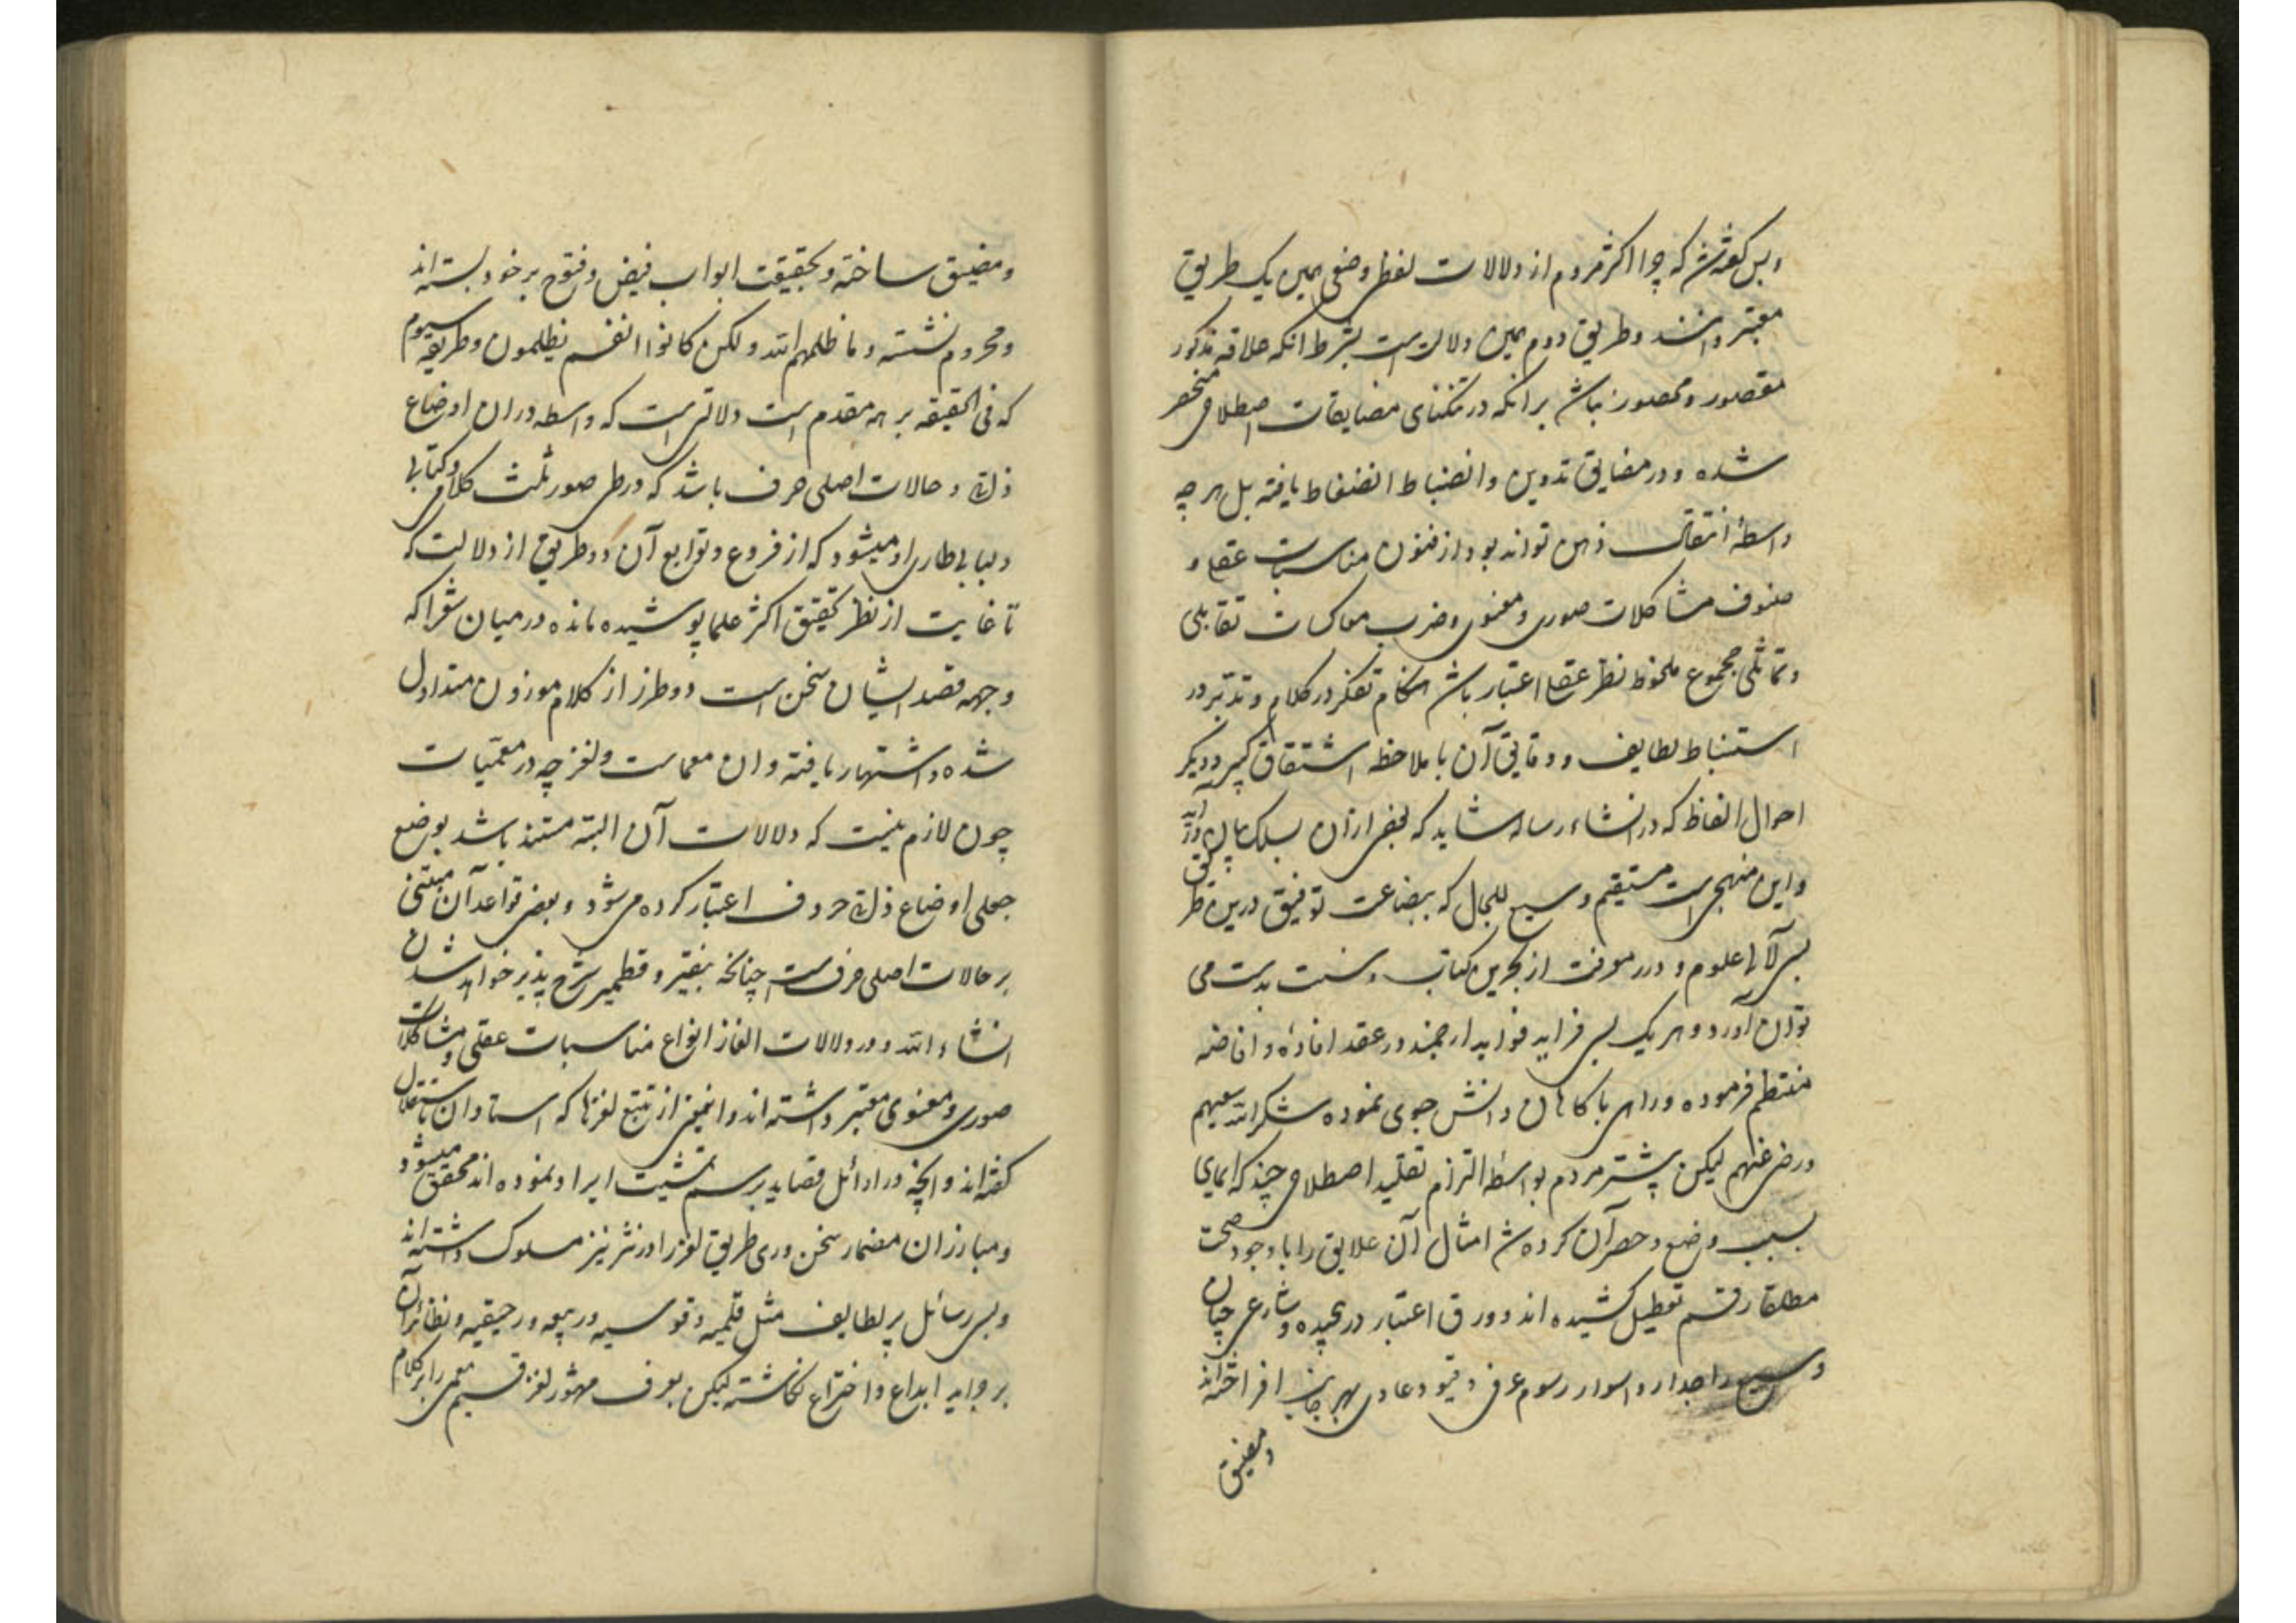 وبس گفته شد که چرا اکثر مردم از دلالات لفظی وضعی همین یک طریق
معتبر داشتند و طریق دوم همین دلالت است بشرط انکه علاقه مذکور
مقصور و محصور نباشد برانکه در تنکنای مضایقات اصطلاحی منحصر
شده و در مضایق تدوین و انضباط انضغاط یافته بل هر چه
واسطهٔ انتقال ذهن تواند بود از فنون مناسبات عقلی و
صنوف مشاکلات صوری و معنوی و ضرب معاکسات تقابلی
و تماثلی مجموع ملحوظ نظر عقل اعتبار باشد هنکام تفکر در کلام و تدبر در
استنباط لطایف و دقایق آن با ملاحظه اشتقاق کبیر و دیکر
احوال الفاظ که در انشاء رساله شاید که بعضی از آن بسلک بیان درآید
و این منهجی است مستقیم وسیع المجال که ببضاعت توفیق درین طریق
بسی لآلی علوم و درر معرفت از بحرین کتاب و سنت بدست می
توان آورد و هر یک بسی فراید فواید ارجمند در عقد افاده و افاضه
منتظم فرموده و راهی باکاهان دانش جوی نموده شکر الله سعیهم
ورضی عنهم لیکن بیشتر مردم بواسطه التزام تقلید اصطلاحی چند که ایمای
بسبب وضع و حصر آن کرده شد امثال آن علایق را با وجود صحت
مطلقا رقم تعطیل کشیده اند و ورق اعتبار در نچیده و شارعی چنان
وسیع را جدار و اسوار رسوم عرفی و قیود عادی بهر جانب افراخته اند
و مضیق
و مضیق ساخته و بحقیقت ابواب فیض و فتوح بر خود بسته اند
و محروم نشسته و ما ظلمهم الله ولکن کانوا انفسهم یظلمون و طریقه سیوم
که فی الحقیقه بر همه مقدم است دلالتی است که واسطه دران اوضاع
ذاتی و حالات اصلی حرف باشد که در طی صور ثلث کلامی و کتابی
و لبابی طاری او میشود که از فروع و توابع آن دو طریق از دلالت که
تا غایت از نظر تحقیق اکثر علما پوشیده مانده در میان شعرا که
وجهه قصد ایشان سخن است دو طرز از کلام موزون متداول
شده و اشتهار یافته و ان معماست و لغز چه در معمیات
چون لازم نیست که دلالات آن البته مستند باشد بوضع
جعلی اوضاع ذاتی حروف اعتبار کرده می شود و بعضی قواعد آن مبتنی
بر حالات اصلی حرف است چنانکه بنقیر و قطمیر شرح پذیر خواهد شدن
انشاء الله و در دلالات الغاز انواع مناسبات عقلی و مشاکلات
صوری و معنوی معتبر داشته اند و اینمعنی از تتبع لغزها که استادان باستقلال
گفته اند و انچه در اوائل قصاید برسم تشبیب ایراد نموده اند محقق میشود
و مبارزان مضمار سخن وری طریق لغز را در نثر نیز مسلوک داشته اند
و بسی رسائل پر لطایف مثل قلمیه و قوسیه و ربیعه و رحیقیه و نظائر آن
بر جراید ابداع و اختراع نکاشته لیکن بعرف مشهور لغز قسیم معمی را بر کلام